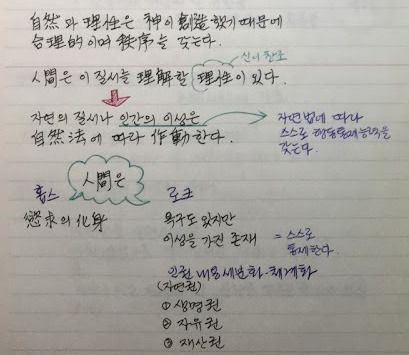 自然과 理性은 神이 創造했기 때문에
合理的이며 秩序를 갖는다.
신이 창조
人間은 이 질서를 理解할 理性이 있다.
자연의 질서나 인간의 이성은
自然法에 따라 作動한다.
자연법에 따라
스스로 행동통제능력을
갖는다.
人間은
홉스
慾求의 化身
로크
욕구도 있지만
이성을 가진 존재 = 스스로
통제한다.
인권 내용 세분화·체계화
(자연권)
① 생명권
② 자유권
③ 재산권